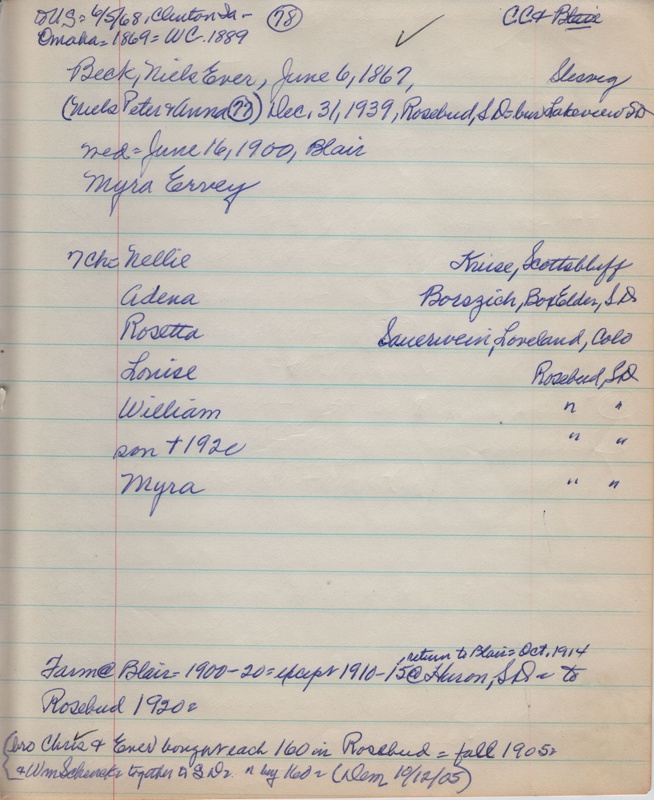 to US = 6/5/68, Clinton Ia - (78) CC & Blair
Omaha = 1869 = WC. 1889
Beck, Niels Ever, June 6, 1867, Slesvig
(Niels Peter & Anna (77)) Dec. 31, 1939, Rosebud, S.D = bur Lakeview SD
med = June 16, 1900, Blair
Myra Ervey
7 Ch = Nellie Kruse, Scottsbluff
Adena Borszich, Box Elder, S.D
Rosetta Sauerwein, Loveland, Colo
Louise Rosebud, S.D
William " "
son † 192 " "
Myra " "
, return to Blair = Oct. 1914
Farm @ Blair = 1900-20 = except 1910-15 @ Huron, S.D = to
Rosebud 1920 =
(bro Chris & Ever) bought each 160 in Rosebud = fall 1905 =
& Wm Schenck = together to S.D = buy 160 = (Dem 10/12/05)